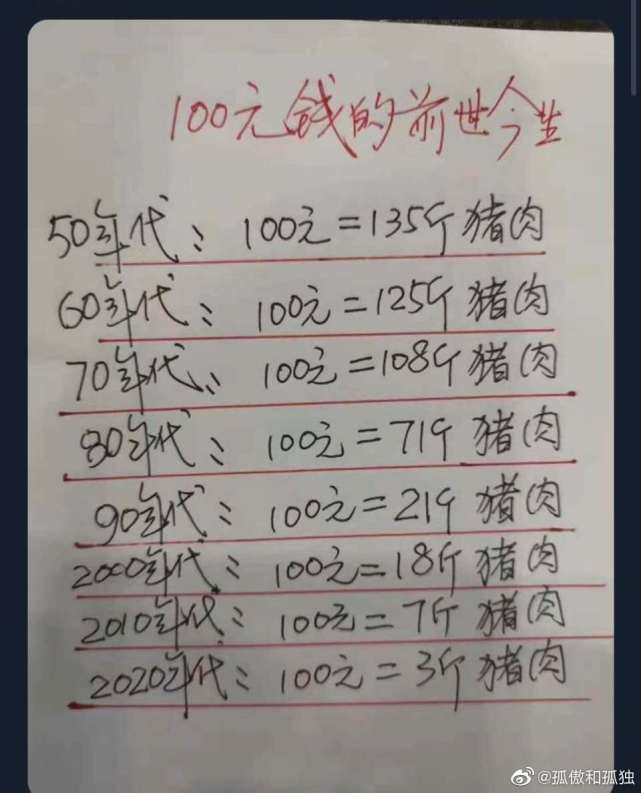 100元钱的前世今生
50年代: 100元=135斤猪肉
60年代: 100元=125斤猪肉
70年代: 100元=108斤猪肉
80年代: 100元=71斤猪肉
90年代: 100元=21斤猪肉
2000年代: 100元=18斤猪肉
2010年代: 100元=7斤猪肉
2020年代: 100元=3斤猪肉
@孤傲和孤独